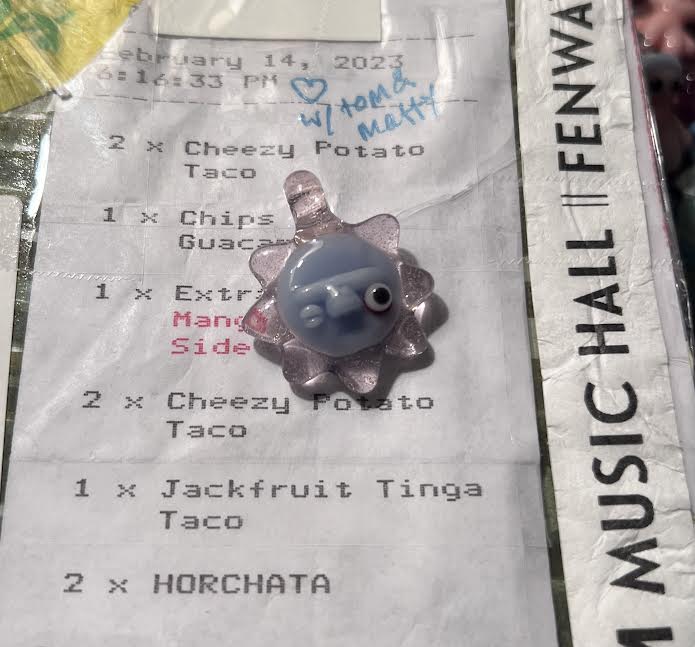 February 14, 2023
6:16:33 PM
♡
w/ tom &
matty
2 x Cheezy Potato
Taco
1 x Chips
1 x
Side
2 x Cheezy Potato
Taco
1 x Jackfruit Tinga
Taco
2 x HORCHATA
MUSIC HALL ||